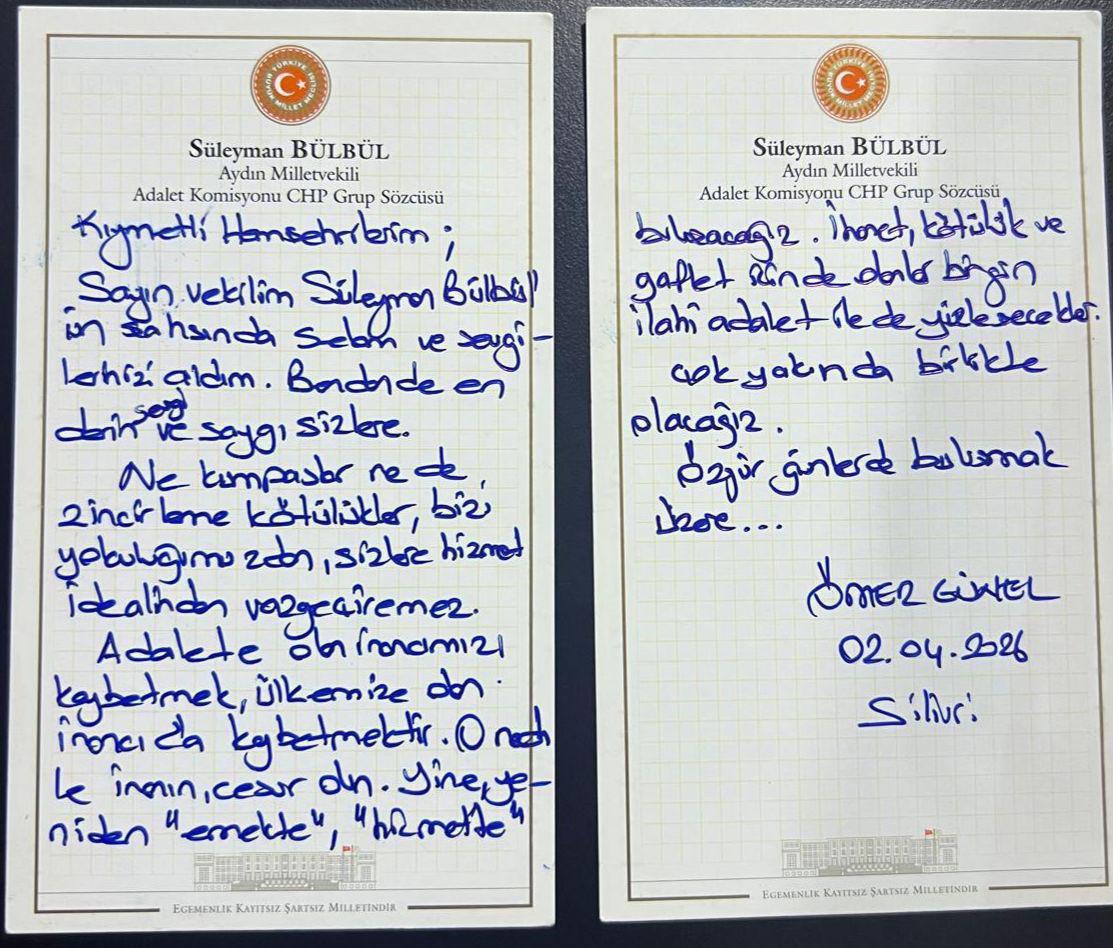 TÜRKİYE BÜYÜK MİLLET MECLİSİ
Süleyman BÜLBÜL
Aydın Milletvekili
Adalet Komisyonu CHP Grup Sözcüsü
Kıymetli Hemşehrilerim;
Sayın vekilim Süleyman Bülbül'
ün şahsında selam ve sevgi-
lerinizi aldım. Bendende en
derin sevgi ve saygı sizlere.
Ne kumpaslar ne de,
zincirleme kötülükler, bizi
yolculuğumuzdan, sizlere hizmet
idealinden vazgeçiremez.
Adalete olan inancımızı
kaybetmek, ülkemize olan
inancı da kaybetmektir. O nedenle
le inanın, cesur olun. Yine, ye-
niden "emekte", "hizmette"
EGEMENLİK KAYITSIZ ŞARTSIZ MİLLETİNDİR
TÜRKİYE BÜYÜK MİLLET MECLİSİ
Süleyman BÜLBÜL
Aydın Milletvekili
Adalet Komisyonu CHP Grup Sözcüsü
buluşacağız. İhanet, kötülük ve
gaflet içinde olanlar birgün
ilahi adalet ile de yüzleşecekler.
Çok yakında birlikte
olacağız.
Özgür günlerde buluşmak
üzere...
ÖMER GÜNEL
02.04.2026
Silivri
EGEMENLİK KAYITSIZ ŞARTSIZ MİLLETİNDİR